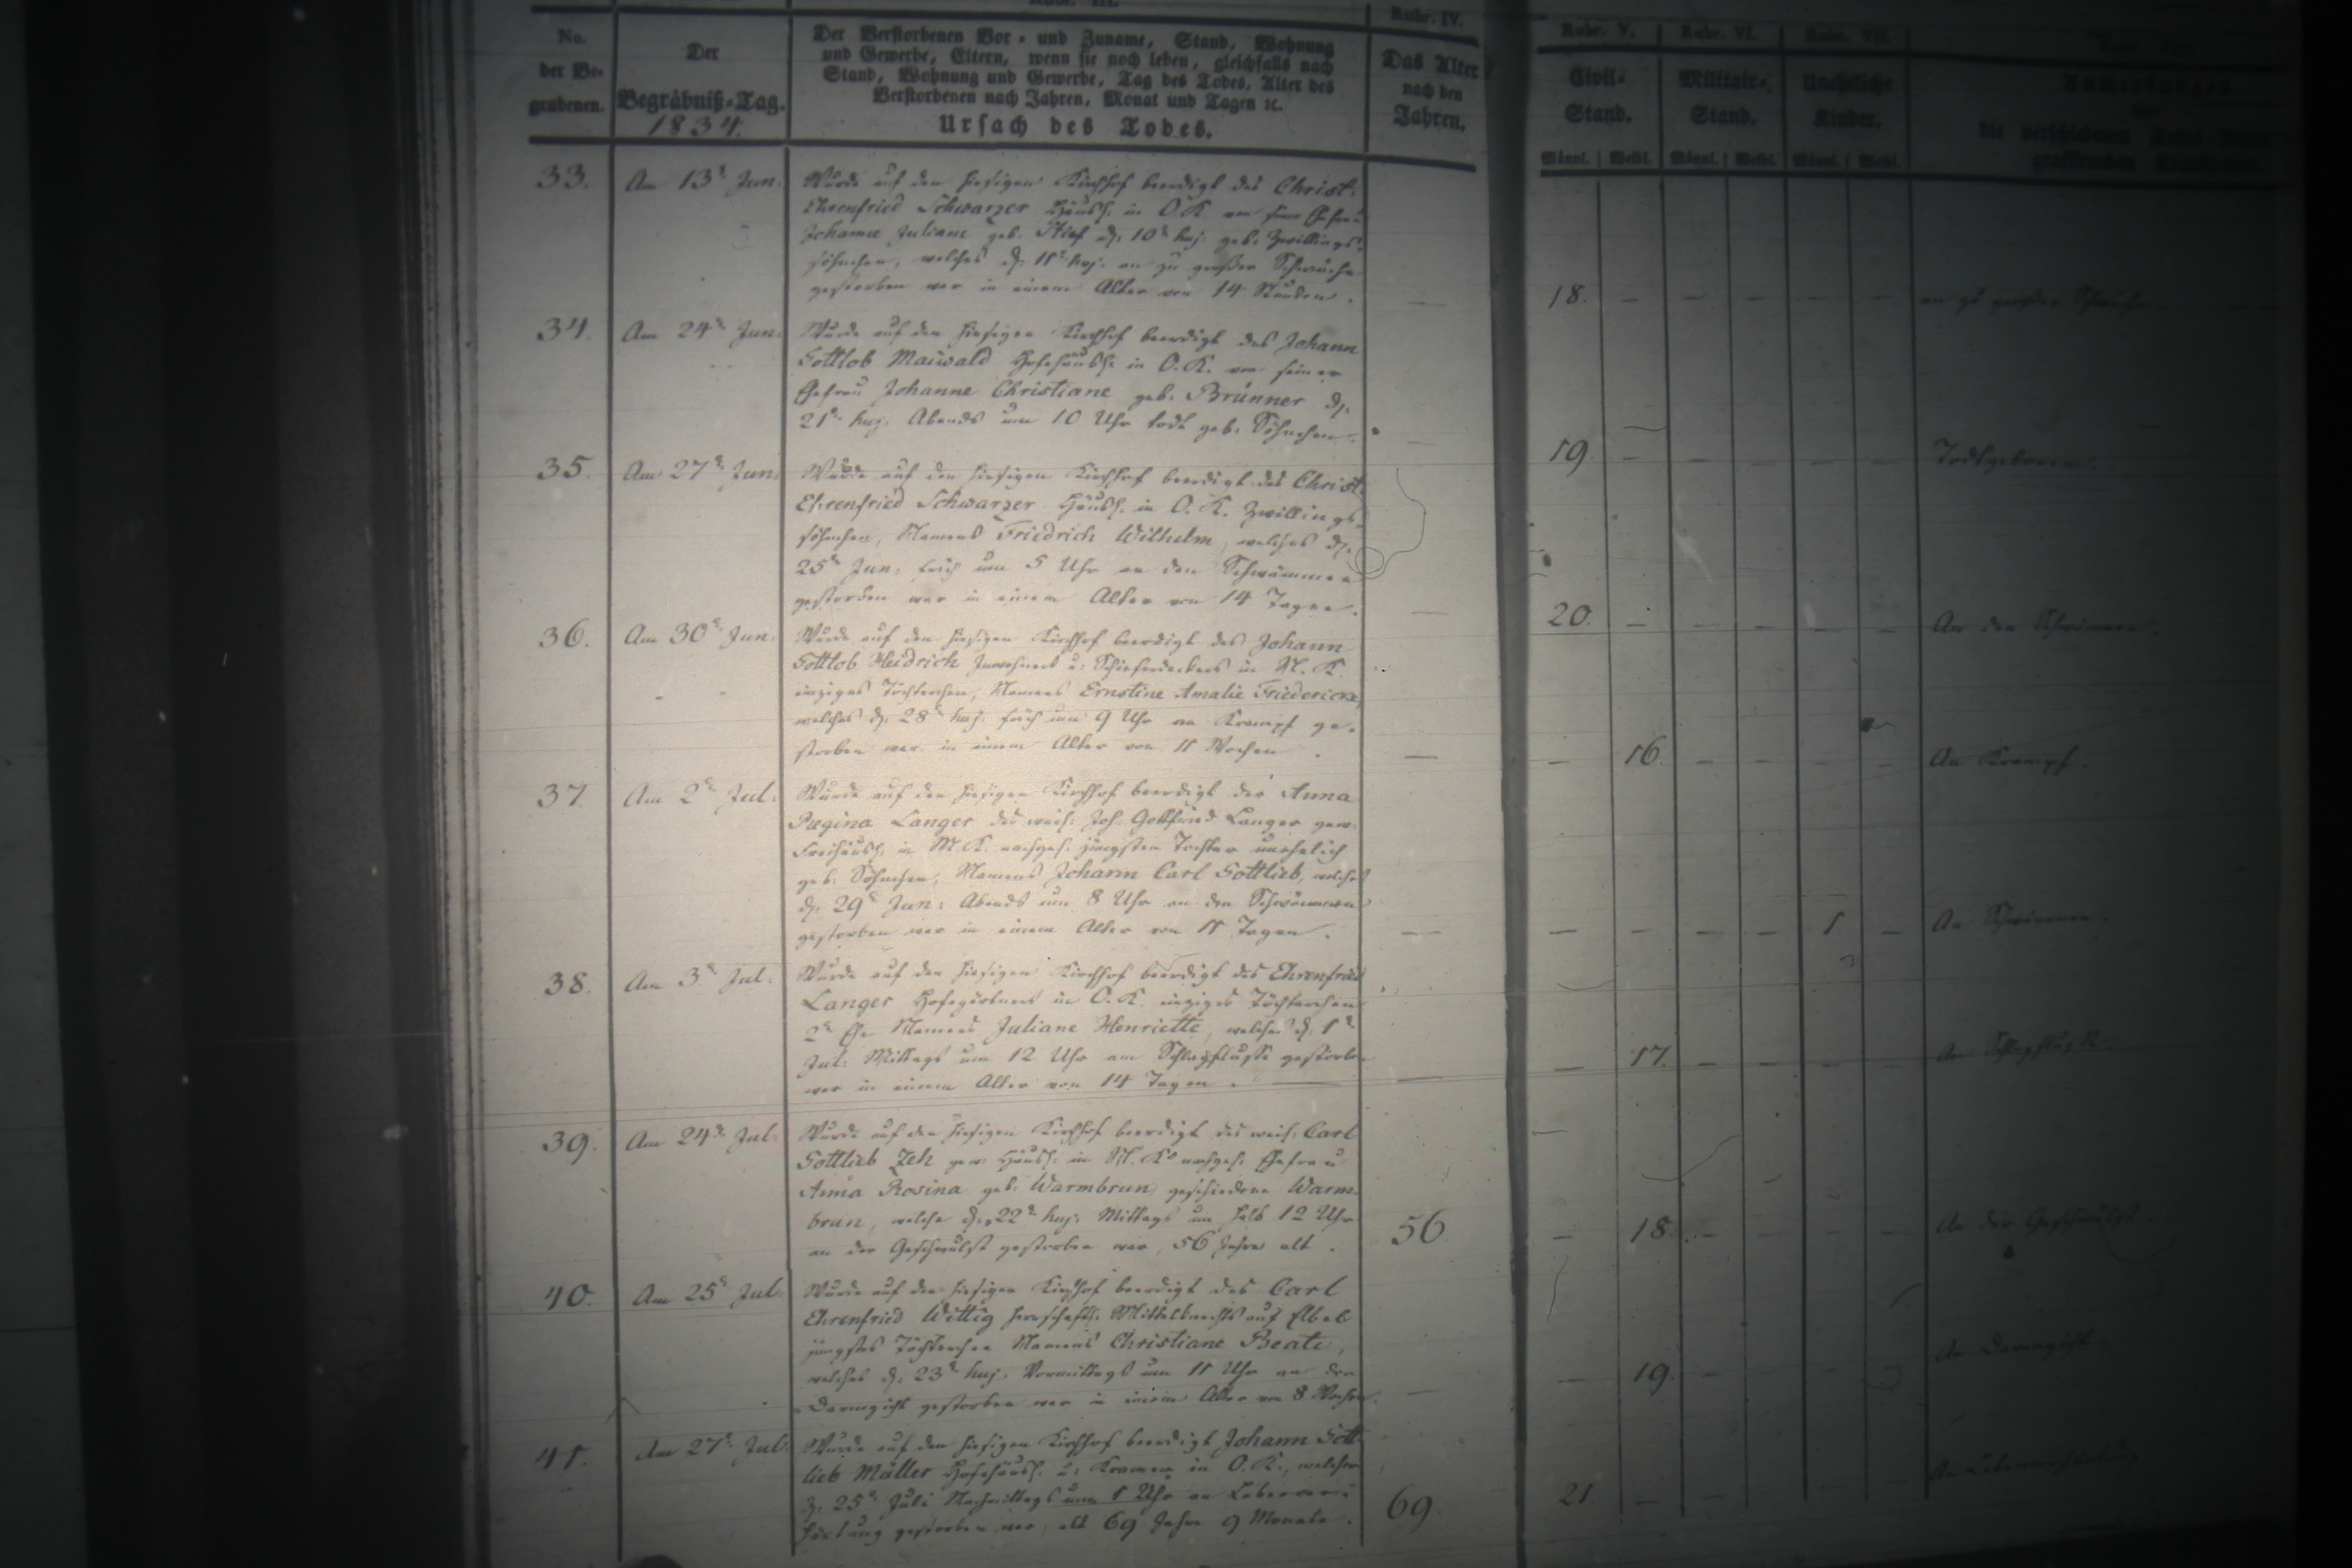 Rubr. III.
Rubr. IV.
Rubr. V.
Rubr. VI.
Rubr. VII.
No.
der Be-
grabenen.
Der
Begräbniß-Tag.
1834.
Der Verstorbenen Vor- und Zuname, Stand, Wohnung
und Gewerbe, Eltern, wenn sie noch leben, gleichfalls nach
Stand, Wohnung und Gewerbe, Tag des Todes, Alter des
Verstorbenen nach Jahren, Monat und Tagen ꝛc.
Ursach des Todes.
Das Alter
nach den
Jahren.
Civil-
Stand.
Militair-
Stand.
Uneheliche
Kinder.
Anmerkungen
Männl. Weibl. Männl. Weibl. Männl. Weibl.
33. Am 13t Jun:
Wurde auf den hiesigen Kirchhof beerdigt des Christ:
Ehrenfried Schwarzer Häusl: in O. K. von seiner Ehefrau
Johanne Juliane geb. d. 10t huj: geb. Zwillings-
söhnchen, welches d. 11t huj: an zu großer Schwäche
gestorben war in einem Alter von 14 Stunden.
18. an zu großer Schwäche.
34. Am 24t Jun:
Wurde auf den hiesigen Kirchhof beerdigt des Johann
Gottlob Maiwald Hofehäusl: in O. K. von seiner
Ehefrau Johanne Christiane geb. Brünner d.
21t huj: Abends um 10 Uhr todt geb. Söhnchen.
19. Todtgeboren.
35. Am 27t Jun:
Wurde auf den hiesigen Kirchhof beerdigt des Christ:
Ehrenfried Schwarzer Häusl: in O. K. Zwillings-
söhnchen, Namens Friedrich Wilhelm, welches d.
25t Jun: früh um 5 Uhr an den Schwämmen
gestorben war in einem Alter von 14 Tagen.
20. An den Schwämmen.
36. Am 30t Jun:
Wurde auf den hiesigen Kirchhof beerdigt des Johann
Gottlob Heidrich Inwohners u: Schieferdeckers in N. K.
einziges Töchterchen, Namens Ernstine Amalie Friedericke,
welches d. 28t huj: früh um 9 Uhr an Krampf ge-
storben war in einem Alter von 11 Wochen.
16. An Krampf.
37. Am 2t Jul:
Wurde auf den hiesigen Kirchhof beerdigt der Anna
Regina Langer des weil: Joh: Gottfried Langer gew:
Freihäusl: in M. K. nachgel: jüngsten Tochter unehelich
geb. Söhnchen, Namens Johann Carl Gottlieb, welches
d. 29t Jun: Abends um 8 Uhr an den Schwämmen
gestorben war in einem Alter von 11 Tagen.
1 An Schwämmen.
38. Am 3t Jul.
Wurde auf den hiesigen Kirchhof beerdigt des Ehrenfried
Langer Hofegärtners in O. K. einziges Töchterchen
2t Ehe Namens Juliane Henriette, welches d. 1t
Jul: Mittags um 12 Uhr am Schlagflusse gestorben
war in einem Alter von 14 Tagen.
17. An Schlagfluss
39. Am 24t Jul:
Wurde auf den hiesigen Kirchhof beerdigt des weil: Carl
Gottlieb Zeh gew: Häusl: in N. K. nachgel: Ehefrau
Anna Rosina geb. Warmbrun, geschiedene Warm-
brun, welche d. 22t huj: Mittags um halb 12 Uhr
an der Geschwulst gestorben war, 56 Jahre alt.
56. 18. An der Geschwulst.
40. Am 25t Jul:
Wurde auf den hiesigen Kirchhof beerdigt des Carl
Ehrenfried Wittig herrschaftl: Mittelknechts auf
jüngstes Töchterchen Namens Christiane Beate,
welches d. 23t huj: Vormittags um 11 Uhr an der
Darmgicht gestorben war in einem Alter von 8 Wochen.
19. An Darmgicht.
41. Am 27t Jul:
Wurde auf den hiesigen Kirchhof beerdigt Johann Gott-
lieb Müller Hofehäusl: u: Kramer in O. K., welcher
d. 25t Juli Nachmittags um 1 Uhr an Leberver-
härtung gestorben war, alt 69 Jahre 9 Monate.
69. 21. An Leberverhärtung